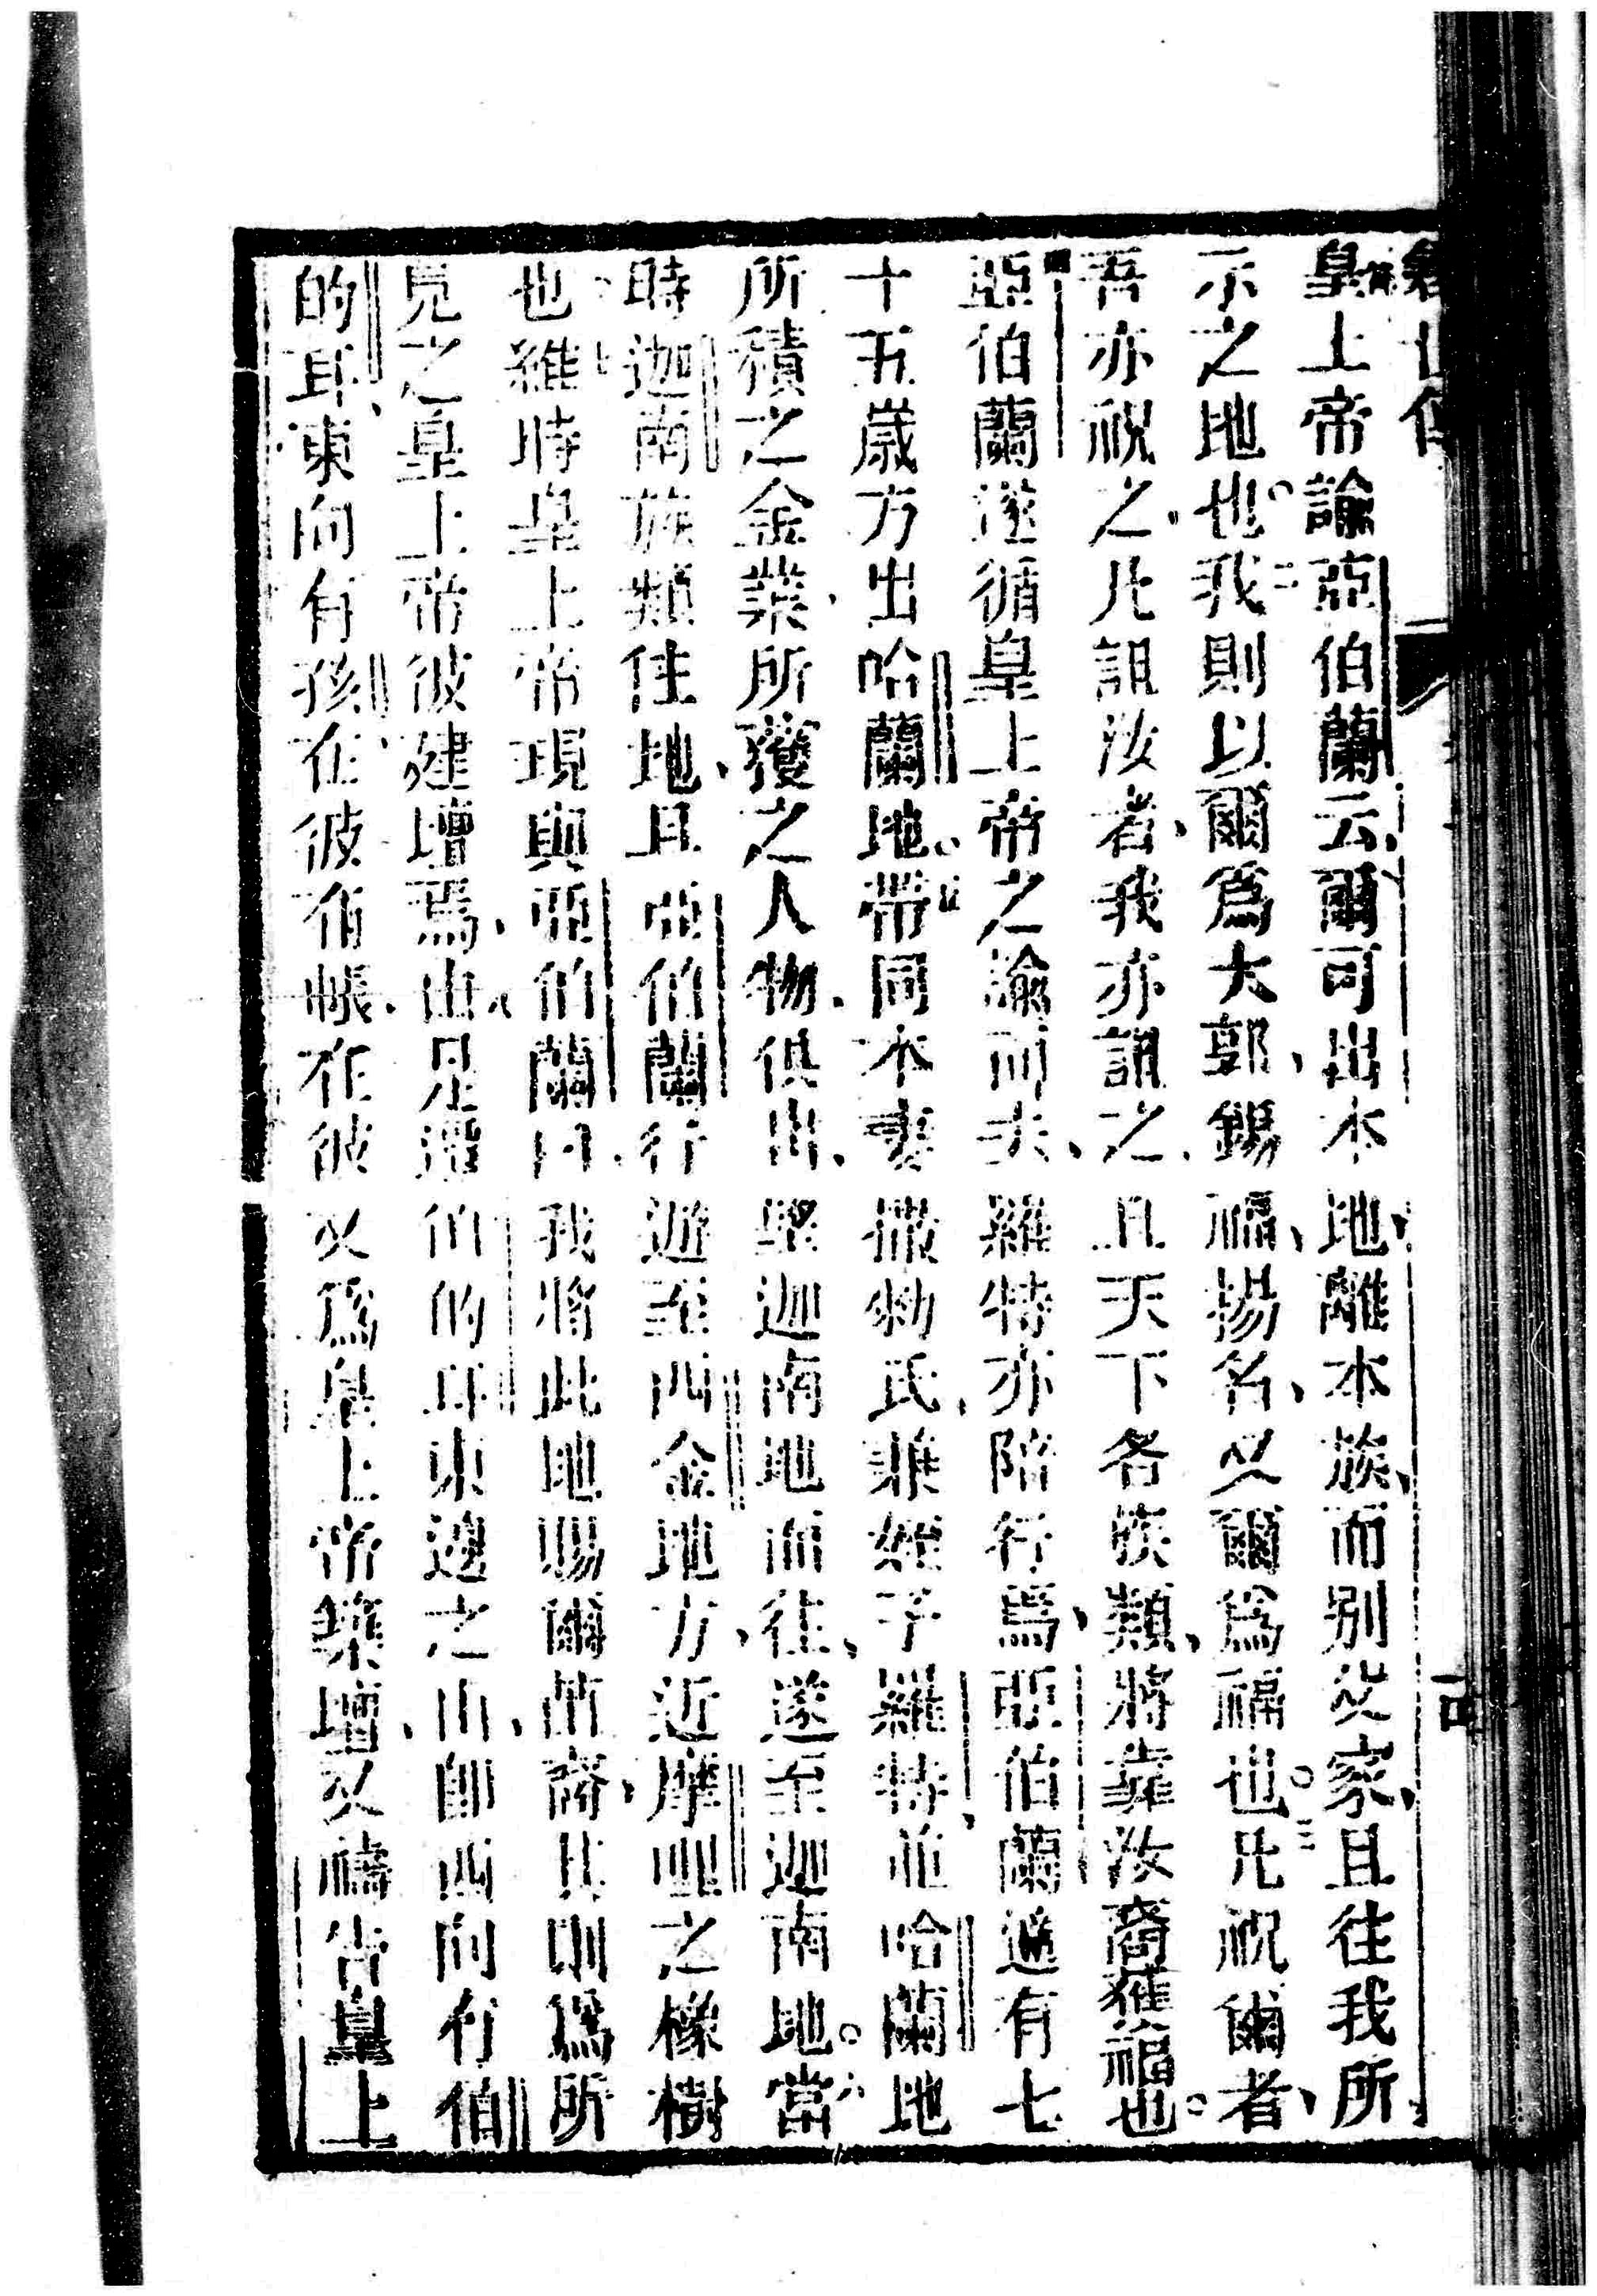 皇上帝諭亞伯蘭云、爾可出本地、離本族、而別父家、且往我所
示之地也。二我則以爾爲大郭、錫福、揚名、又爾爲福也。三凡祝爾者、
吾亦祝之、凡詛汝者、我亦詛之、且天下各族類、將靠汝裔獲福也。
四亞伯蘭遂循皇上帝之諭而去、羅特亦陪行焉、亞伯蘭適有七
十五歲方出哈蘭地。五帶同本妻撒拉氏、兼姪子羅特、並哈蘭地
所積之金業、所獲之人物、俱出、墜迦南地而往、遂至迦南地。六當
時迦南族類住地、且亞伯蘭行遊至西金地方、近摩哩之橡樹
也、七維時皇上帝現與亞伯蘭曰、我將此地賜爾苗裔、其則爲所
見之皇上帝彼建壇焉、八由是遷伯的耳東邊之山、卽西向有伯
的耳、東向有孩、在彼布帳、在彼又爲皇上帝築壇、又禱告皇上